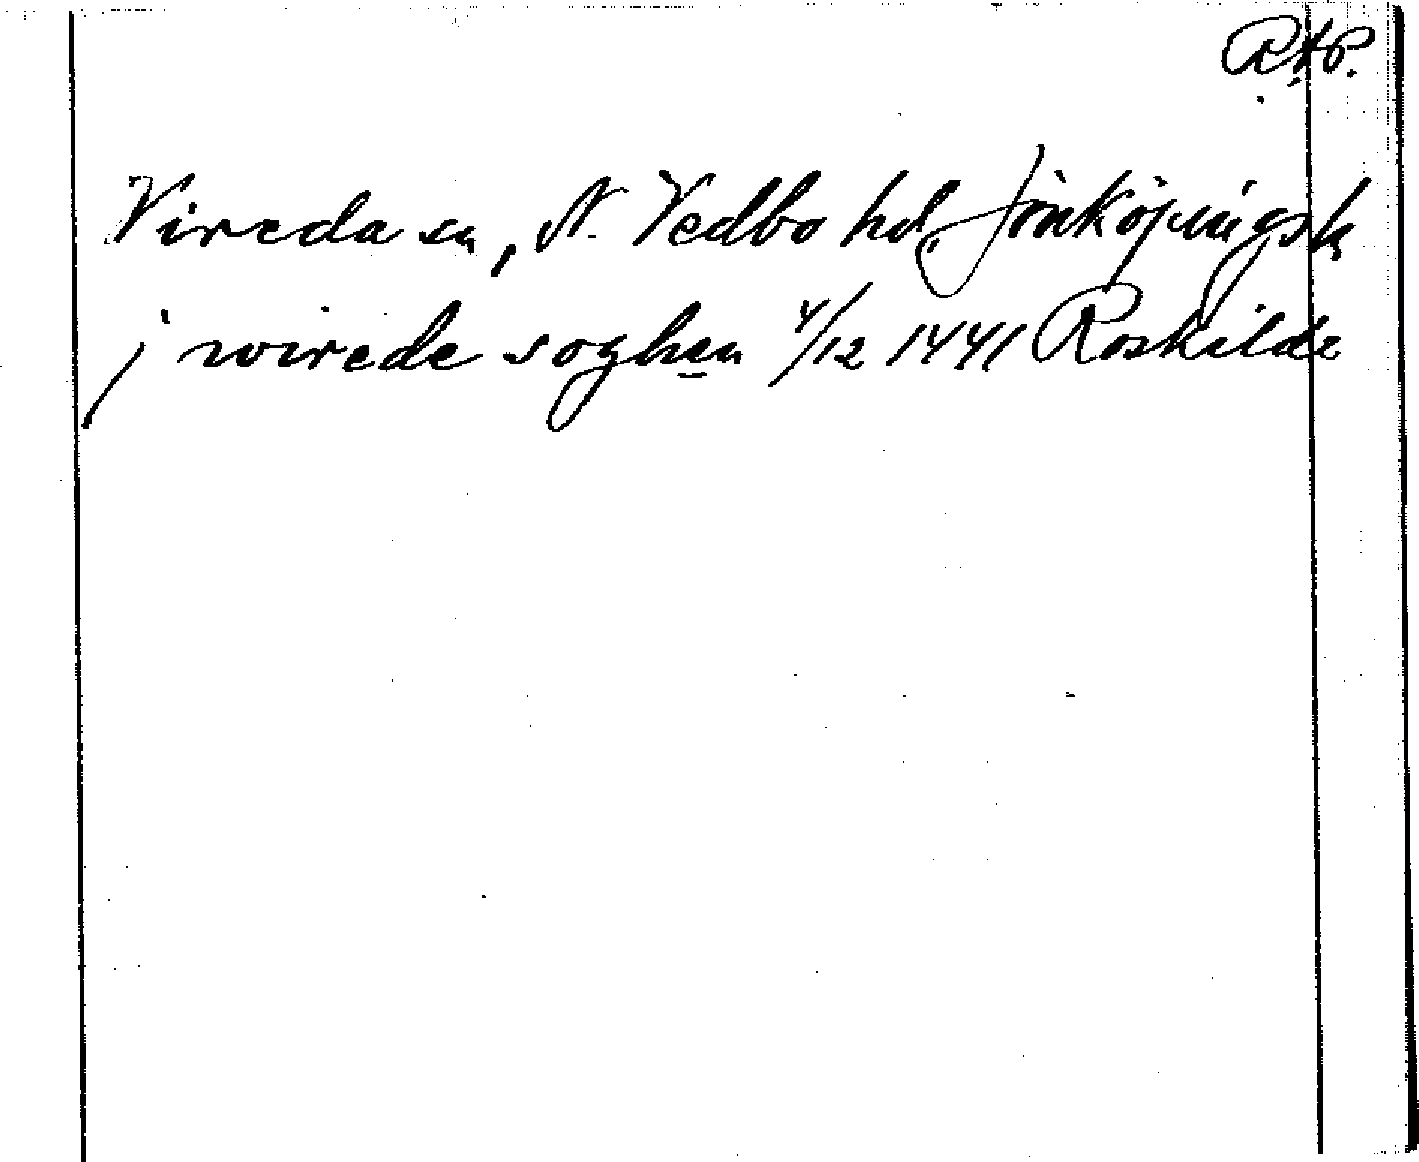 RAP.
Vireda sn, N. Vedbo hd, Jönköpings l.
j wirede soghen 4/12 1441 Roskilde